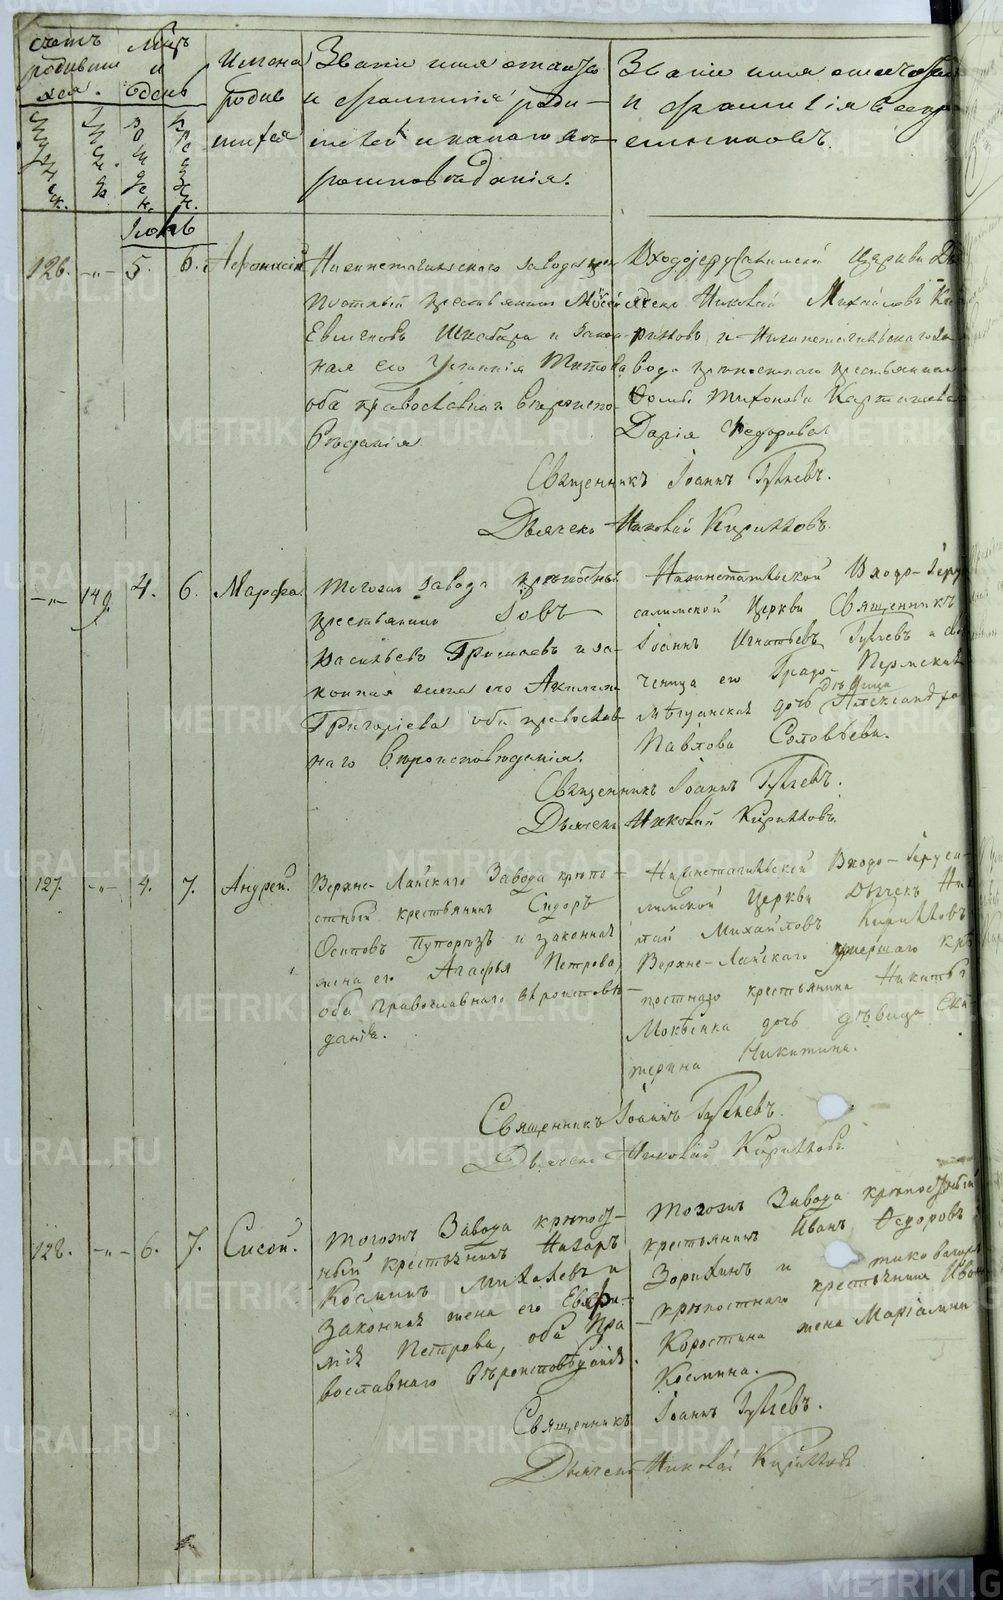 Счетъ родившихся.
Мужеск.
Женск.
Мѣсяцъ и день
рожден.
крещен.
Имена родившихся
Званiе имя отчество
и фамилiя роди-
телей и какого вѣ-
роисповѣданiя.
Званiе имя отчество
и фамилiя воспрi-
емниковъ.
Iюль
126. -„- 5. 6. Афонасiй
Нижнетагильскаго завода крѣ-
постный крестьянинъ Моисей
Евменовъ и закон-
ная его Устинiя Титова
оба православнаго вѣроиспо-
вѣданiя.
Входоiерусалимской Церкви Дья-
чекъ Николай Михайловъ Ки-
рилловъ и Нижнетагильскаго за-
вода крѣпостнаго крестьянина
Тихонова Карташева
Дарiя Федорова
Священникъ Iоаннъ
Дьячекъ Николай Кирилловъ.
-„- 149. 4. 6. Марфа
Тогожъ завода крѣпостный
крестьянинъ Iовъ
Васильевъ и за-
конная жена его Акилина
Григорiева оба православ-
наго вѣроисповѣданiя.
Нижнетагильской Входо-Iеру-
салимской Церкви Священникъ
Iоаннъ Игнатьевъ и
его Градо-Пермская
мѣщанская дочь дѣвица Александра
Павлова Соловьева.
Священникъ Iоаннъ
Дьячекъ Николай Кирилловъ
127. -„- 4. 7. Андрей.
Верхне-Лайскаго Завода крѣпо-
стный крестьянинъ Сидоръ
Осиповъ и законная
жена его Агафья Петрова,
оба Православнаго вѣроисповѣ-
данiя.
Нижнетагильской Входо-Iеруса-
лимской Церкви Дьячекъ Нико-
лай Михайловъ Кирилловъ
Верхне-Лайскаго умершаго крѣ-
постнаго крестьянина Никиты
Мокѣенка дочь дѣвица Ека-
терина Никитина.
Священникъ Iоаннъ
Дьячекъ Николай Кирилловъ
128. -„- 6. 7. Сисой.
Тогожъ Завода крѣпост-
ный крестьянинъ Назаръ
Косминъ Михалевъ и
законная жена его Евфи-
мiя Петрова, оба Пра-
вославнаго Вѣроисповѣданiя.
Тогожъ Завода крѣпостный
крестьянинъ Иванъ Федоровъ
Зорихинъ и
крѣпостнаго крестьянина Ивана
Коростина жена Марiамна
Космина.
Священникъ Iоаннъ
Дьячекъ Николай Кирилловъ
METRIKI.GASO-URAL.RU